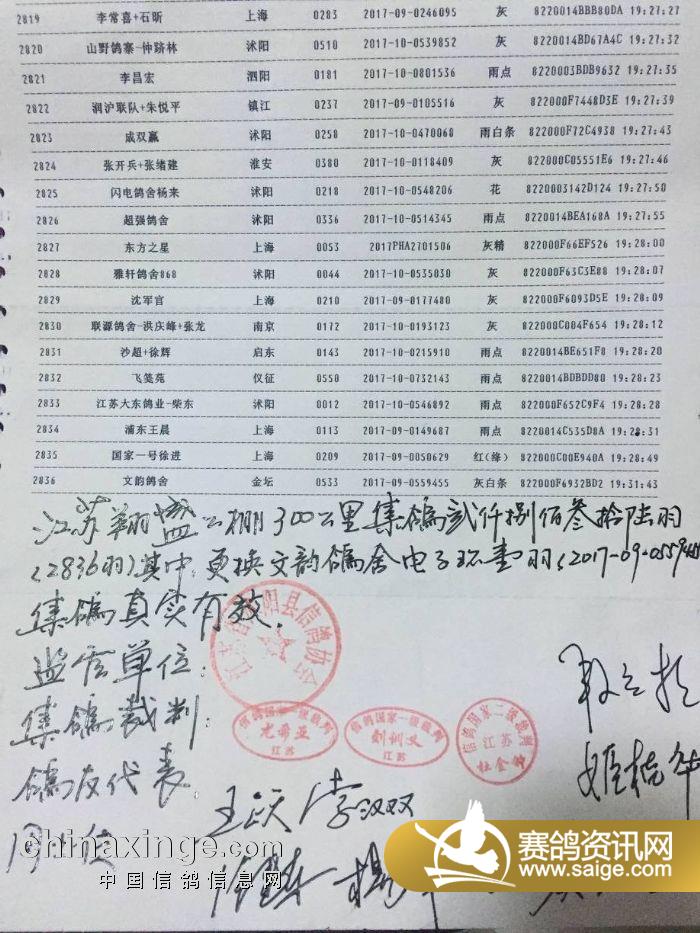 2819 李常喜+石昕 上海 0283 2017-09-0246095 灰 8220014BBB80DA 19:27:27
2820 山野鸽寨-仲跻林 沭阳 0510 2017-10-0539852 灰 8220014BD67A4C 19:27:32
2821 李昌宏 泗阳 0181 2017-10-0801536 雨点 8220003BDB9632 19:27:35
2822 润沪联队+朱悦平 镇江 0237 2017-09-0105516 灰 822000F7448D3E 19:27:39
2823 成双赢 沭阳 0258 2017-10-0470068 雨白条 822000F72C4938 19:27:43
2824 张开兵+张绪建 淮安 0380 2017-10-0118409 灰 822000C05551E6 19:27:46
2825 闪电鸽舍杨来 沭阳 0218 2017-10-0548206 花 8220003142D124 19:27:50
2826 超强鸽舍 沭阳 0336 2017-10-0514345 雨点 8220014BEA168A 19:27:55
2827 东方之星 上海 0053 2017PHA2701506 灰精 822000F66EF526 19:28:00
2828 雅轩鸽舍868 沭阳 0044 2017-10-0535030 灰 822000F63C3E88 19:28:07
2829 沈军官 上海 0210 2017-09-0177480 灰 822000F6093D5E 19:28:09
2830 联源鸽舍-洪庆峰+张龙 南京 0172 2017-10-0193123 灰 822000C004F654 19:28:12
2831 沙超+徐辉 启东 0143 2017-10-0215910 雨点 8220014BE651F8 19:28:20
2832 飞笺苑 仪征 0550 2017-10-0732143 雨点 8220014BDBDD80 19:28:23
2833 江苏大东鸽业-柴东 沭阳 0012 2017-10-0546892 雨点 822000F652C9F4 19:28:28
2834 浦东王晨 上海 0113 2017-09-0149687 雨点 8220014C535D8A 19:28:31
2835 国家一号徐进 上海 0209 2017-09-0050629 红(绛) 822000C00E940A 19:28:49
2836 文韵鸽舍 金坛 0533 2017-09-0559455 灰白条 822000F6932BD2 19:31:43
江苏翔盛公棚300公里集鸽贰仟捌佰叁拾陆羽
(2836羽)其中:更换文韵鸽舍电子环壹羽(2017-09-0559455)
集鸽真实有效.
沭阳县信鸽协会
监管单位:
集鸽裁判:
信鸽国家一级裁判 尤希亚 江苏
信鸽国家一级裁判 江苏
信鸽国家二级裁判 江苏 杜金钟
鸽友代表:
王跃 李汉双
chinaxinge.com
中国信鸽信息网
赛鸽资讯网
www.saige.com